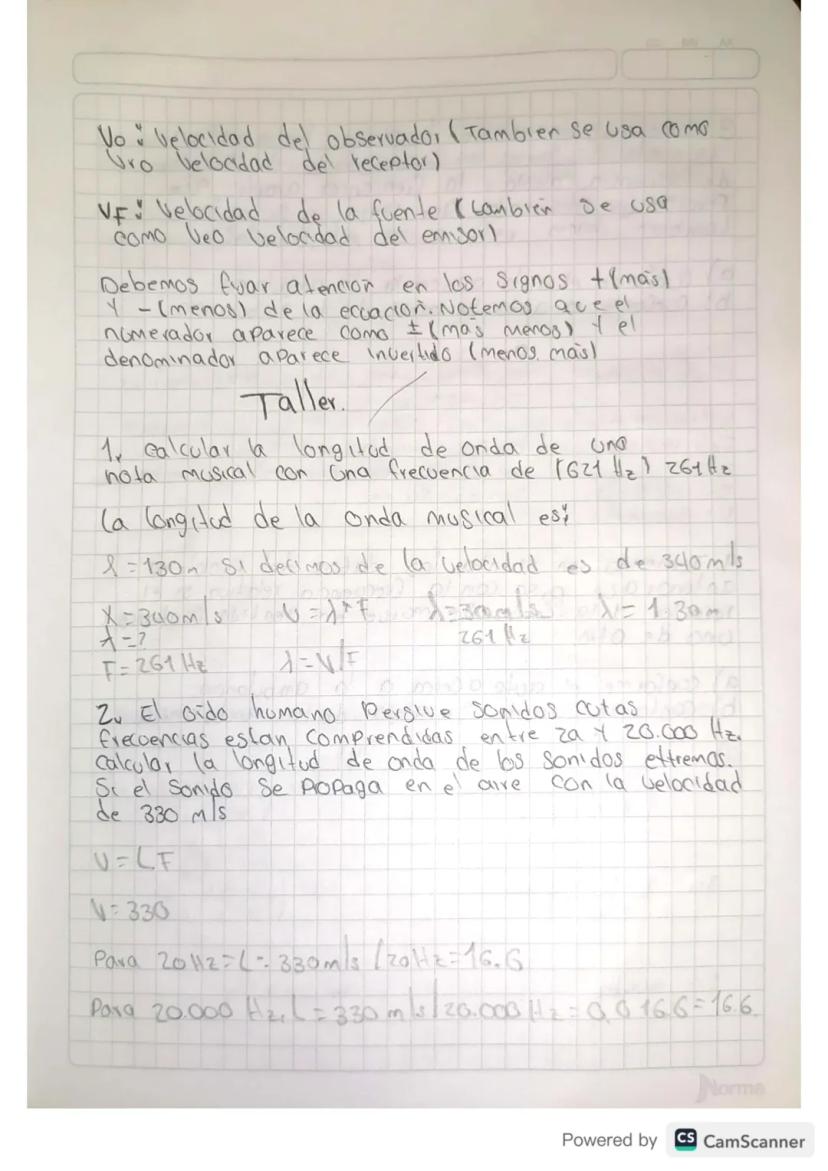 Vo: Velocidad del observador (Tambien se usa como
Vro Velocidad del receptor)
VF: Velocidad de la fuente (también se usa
como Veo Velocidad del emisor)
Debemos fijar atención en los signos +(más)
Y -(menos) de la ecuación. Notemos que el
numerador aparece como ±(más menos) Y el
denominador aparece invertido (menos más)
Taller.
1. Calcular la longitud de onda de una
nota musical con una frecuencia de (621 Hz) 261 Hz
La longitud de la onda musical es:
λ=130m Si decimos de la velocidad es de 340 m/s
X=340m/s V=λ*F λ=340m/s λ=1.30m
λ=? 261 Hz
F=261 Hz λ=V/F
2. El oído humano Persive sonidos cutas
frecuencias estan comprendidas entre 2a Y 20.000 Hz.
Calcular la longitud de onda de los sonidos extremos.
Si el sonido se propaga en el aire con la velocidad
de 330 m/s
V=LF
V=330
Para 20Hz=L=330m/s/20Hz=16.6
Para 20.000 Hz, L=330 m/s/20.000 Hz=0,0166=16.6
Norma
Powered by CS CamScanner